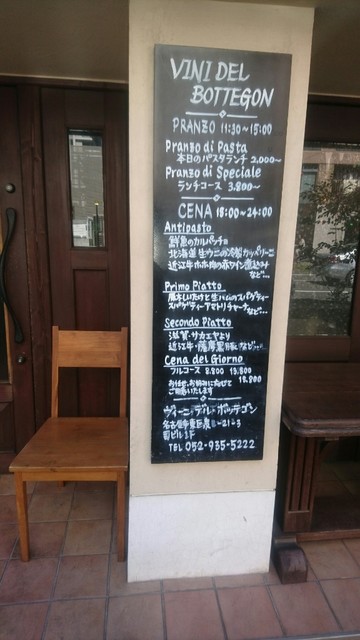 VINI DEL
BOTTEGON
PRANZO 11:30~15:00
Pranzo di Pasta
本日のパスタランチ 2.000~
Pranzo di Speciale
ランチコース 3.800~
CENA 18:00~24:00
Antipasto
鮮魚のカルパッチョ
北海道 生ウニの冷製カッペリーニ
近江牛ホホ肉の赤ワイン煮込み
など…
Primo Piatto
原木しいたけと生ハムのスパゲティー
スパゲティーアマトリチャーナ など…
Secondo Piatto
滋賀・サカエヤより
近江牛・薩摩黒豚 など…
Cena del Giorno
フルコース 8.800 13.800
18.800
お任せ、お好みに応じて
ご用意いたします
ヴィーニ・デル・ボッテゴン
名古屋市東区泉
ビル1F
TEL 052-935-5222